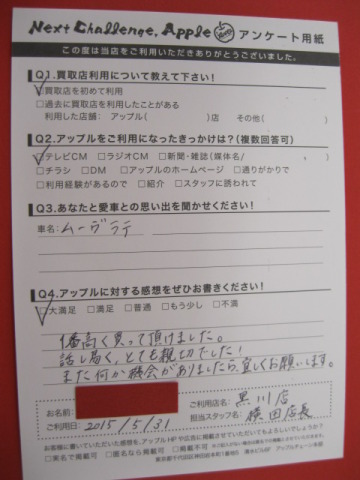 Next Challenge. Apple アンケート用紙
この度は当店をご利用いただきありがとうございました。
Q1.買取店利用について教えて下さい!
□買取店を初めて利用
□過去に買取店を利用したことがある
利用した店舗: アップル( )店 その他( )
Q2.アップルをご利用になったきっかけは?(複数回答可)
□テレビCM □ラジオCM □新聞・雑誌(媒体名/ )
□チラシ □DM □アップルのホームページ □通りがかりで
□利用経験があるので □紹介 □スタッフに誘われて
Q3.あなたと愛車との思い出を聞かせください!
車名: ムーヴラテ
Q4.アップルに対する感想をぜひお書きください!
□大満足 □満足 □普通 □もう少し □不満
1番高く買って頂けました。
話し易く、とても親切でした!
また何か機会がありましたら、宜しくお願いします。
お名前
ご利用店名: 黒川店
ご利用日: 2015/5/31
担当スタッフ名: 横田店長
お客様に書いていただいた感想を、アップルHPや広告に掲載させていただいてもよろしいでしょうか?
□実名で掲載可 □匿名なら掲載可 □掲載不可